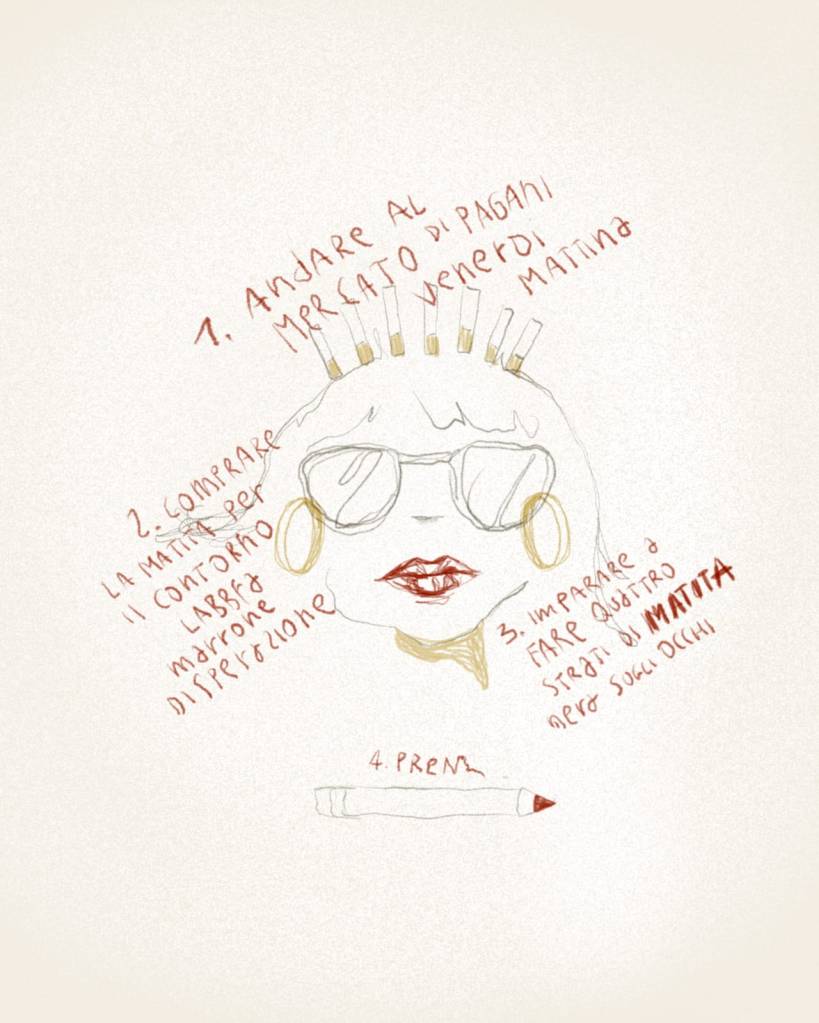 1. AndARe AL
MeRCATO DI PAGAnI
VenerDI
MATTina
2. COMPRARE
LA MATITA Per
Il CONTORNO
LABBRA
marrone
DISPERAZIONE
3. IMPARARE a
FARE QUATTRO
STRATI DI MATITA
nera SUGLI OCCHI
4. PREN